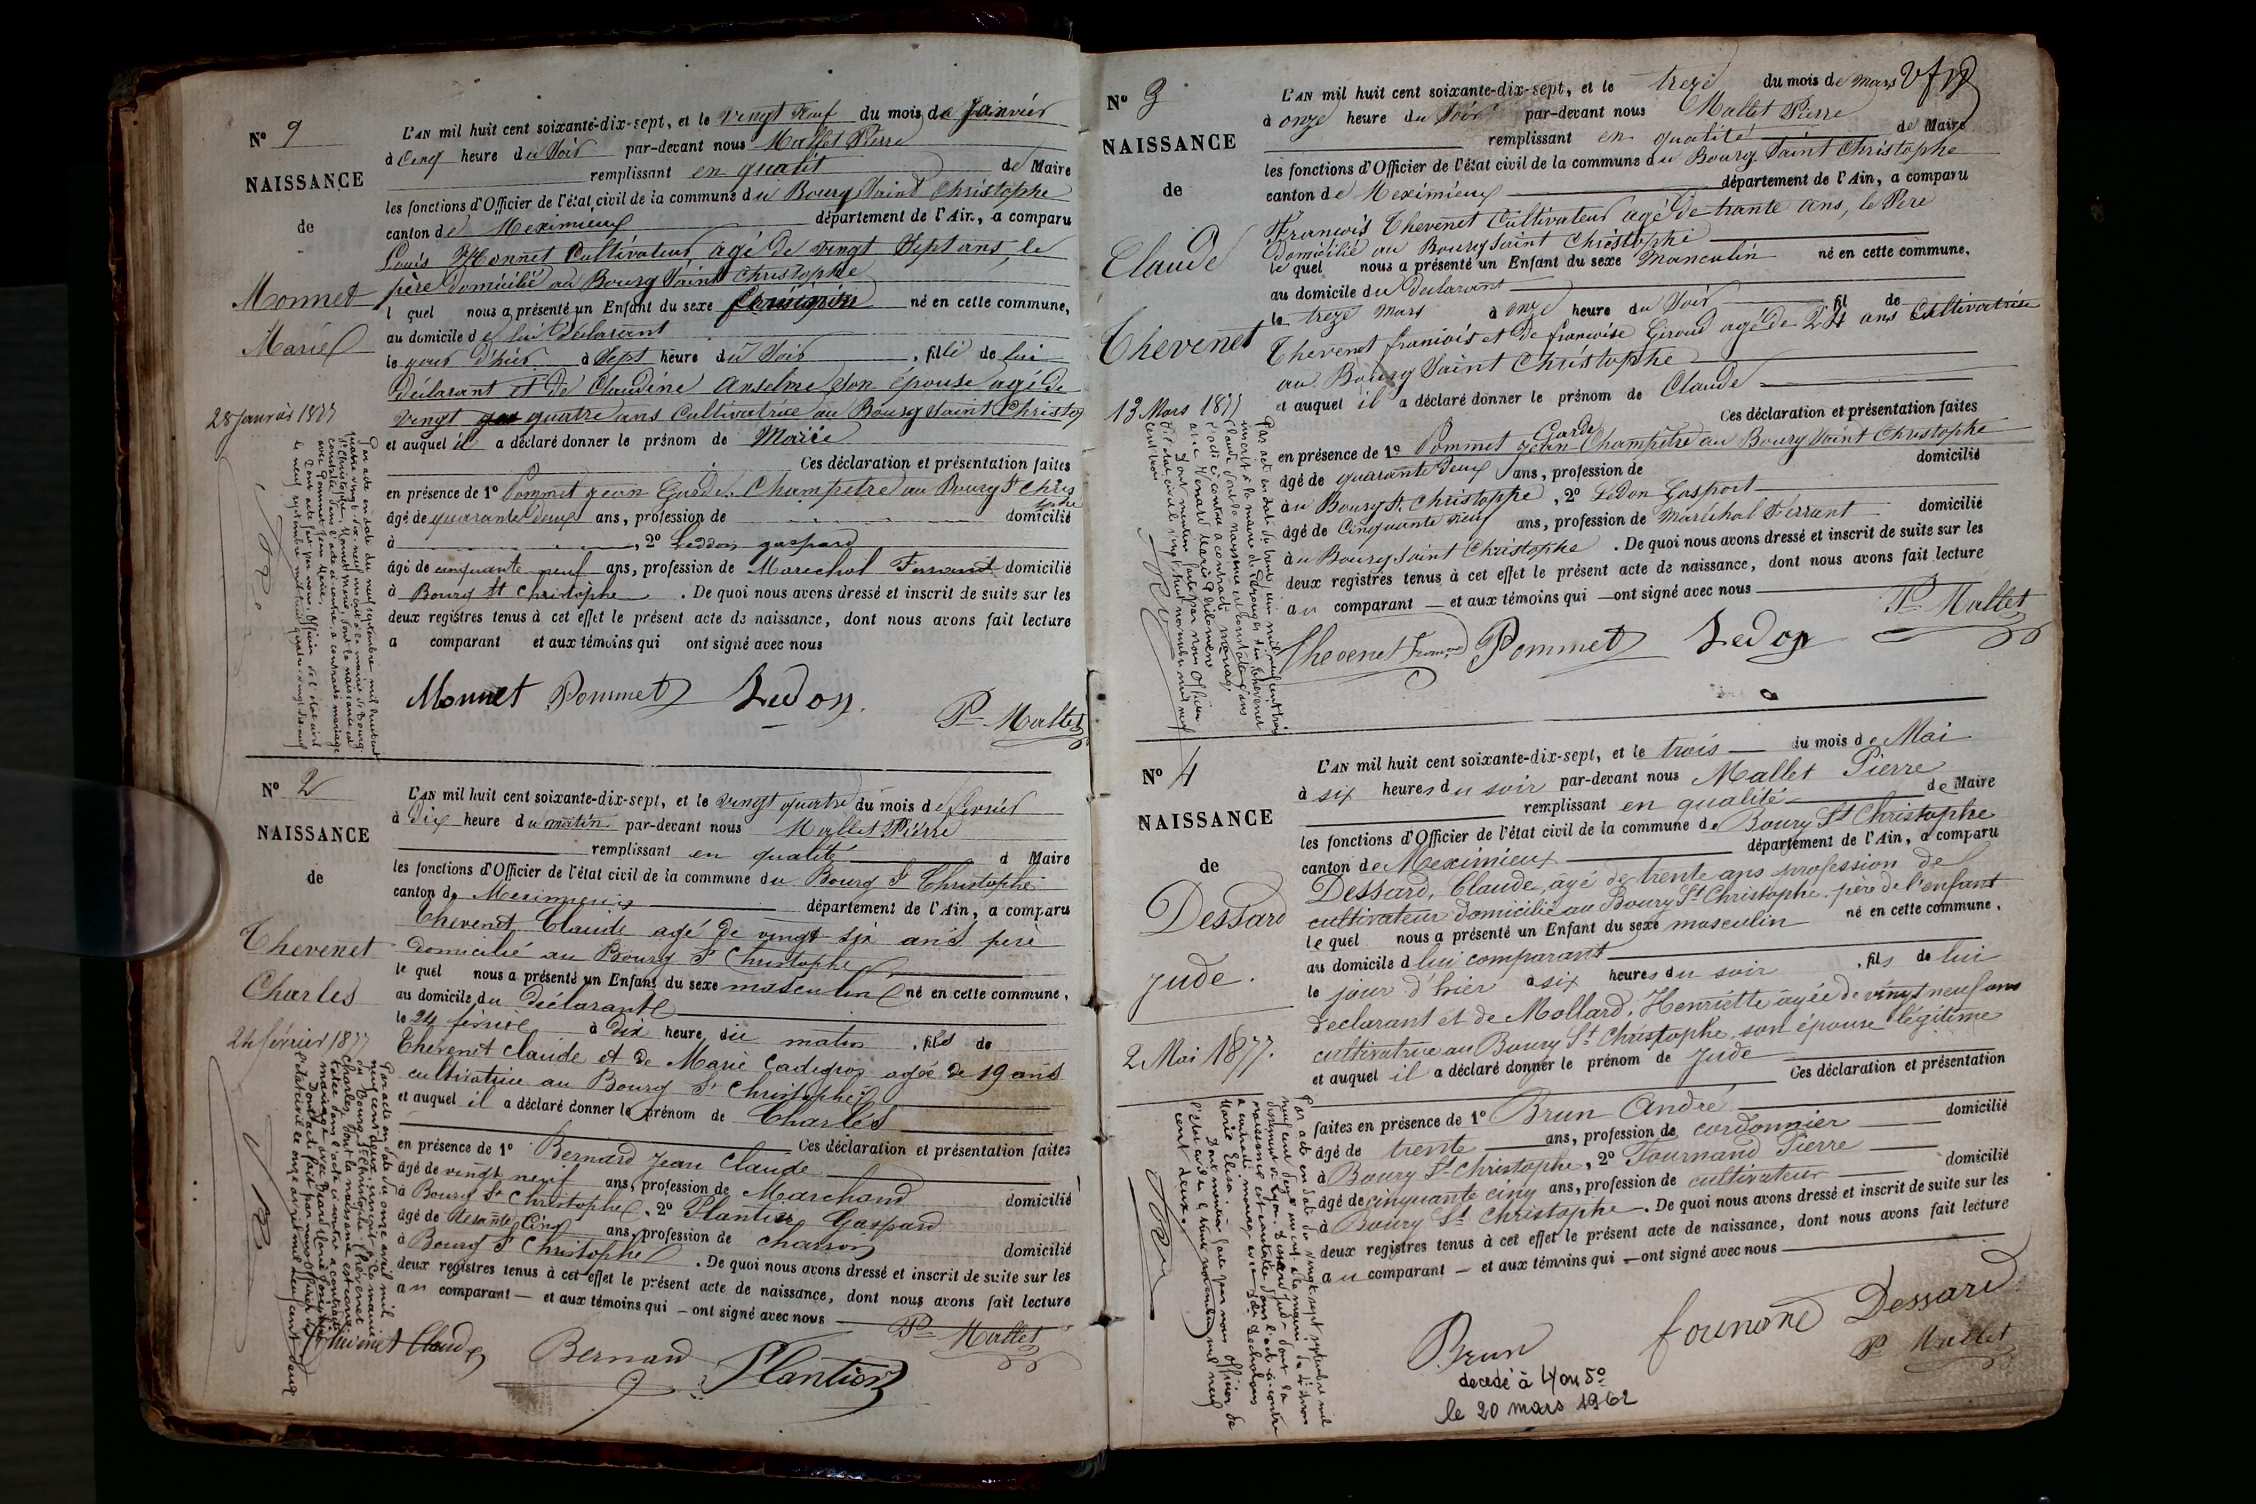 N° 9
NAISSANCE
de
Monnet
Marie
28 janvier 1877
L'AN mil huit cent soixante-dix-sept, et le vingt neuf du mois de Janvier
à cinq heure du Soir par-devant nous Mallet Pierre
remplissant en qualit de Maire
les fonctions d'Officier de l'état civil de la commune du Bourg Saint Christophe
canton de Meximieux département de l'Ain, a comparu
Louis Monnet Cultivateur, agé de vingt Sept ans, le
père domicilié au Bourg Saint Christophe
l quel nous a présenté un Enfant du sexe né en cette commune,
au domicile de lui déclarant
le jour d'hier à Sept heure du Soir, fille de lui
déclarant et de Claudine Anselme son épouse agé de
vingt quatre ans Cultivatrice au Bourg Saint Christop
et auquel il a déclaré donner le prénom de Marie
Ces déclaration et présentation faites
en présence de 1° Pommet jean Garde Champetre au Bourg St Chris
tophe
âgé de quarante deux ans, profession de domicilié
à , 2° Leddon gaspard
âgé de cinquante neuf ans, profession de Marechal Ferrant domicilié
à Bourg St Christophe . De quoi nous avons dressé et inscrit de suite sur les
deux registres tenus à cet effet le présent acte de naissance, dont nous avons fait lecture
a comparant et aux témoins qui ont signé avec nous
Monnet Pommet Ledon
P. Mallet
Par acte en date du neuf septembre mil huit cent
quatre vingt dix-neuf inscrit à la mairie de Bourg
St Christophe, Monnet Marie, dont la naissance est
constatée dans l'acte ci-contre, a contracté mariage
avec Pommet Jean Marie.
Dont acte fait par nous, Officier de l'état civil
le neuf septembre mil huit cent quatre vingt dix neuf
N° 2
NAISSANCE
de
Thevenet
Charles
24 février 1877
L'AN mil huit cent soixante-dix-sept, et le vingt quatre du mois de fevrier
à dix heure du matin par-devant nous Mallet Pierre
remplissant en qualité d Maire
les fonctions d'Officier de l'état civil de la commune du Bourg St Christophe
canton de Meximieux département de l'Ain, a comparu
Thevenet Claude agé de vingt six ans père
domicilié au Bourg St Christophe
le quel nous a présenté un Enfant du sexe masculin né en cette commune,
au domicile du déclarant
le 24 février à dix heure du matin, fils de
Thevenet claude et de Marie Cadigros agée de 19 ans
cultivatrice au Bourg St Christophe
et auquel il a déclaré donner le prénom de Charles
Ces déclaration et présentation faites
en présence de 1° Bernard Jean Claude
âgé de vingt neuf ans, profession de Marchand domicilié
à Bourg St Christophe, 2° Plantier Gaspard
âgé de Soixante Cinq ans, profession de charron domicilié
à Bourg St Christophe . De quoi nous avons dressé et inscrit de suite sur les
deux registres tenus à cet effet le présent acte de naissance, dont nous avons fait lecture
au comparant — et aux témoins qui — ont signé avec nous
P. Mallet
Thevenet Claude Bernard Plantier
Par acte en date du onze avril mil
neuf cent deux, inscrit à la mairie
du Bourg St Christophe, Thevenet
Charles, dont la naissance est cons
tatée dans l'acte ci-contre a contracté
mariage avec
Dont acte fait par nous Officier de
l'état civil le onze avril mil neuf cent deux
N° 3
NAISSANCE
de
Claude
Thevenet
13 Mars 1877
L'AN mil huit cent soixante-dix-sept, et le treze du mois de mars
à onze heure du Soir par-devant nous Mallet Pierre
remplissant en qualité de Maire
les fonctions d'Officier de l'état civil de la commune du Bourg Saint Christophe
canton de Meximieux département de l'Ain, a comparu
François Thevenet Cultivateur agé de trante ans, le Pere
Domicilié au Bourg Saint Christophe
le quel nous a présenté un Enfant du sexe Manculin né en cette commune,
au domicile du declarant
le treze Mars à onze heure du Soir fil de
Thevenet franiois et de francoise Giroud agé de 24 ans Cultivatrise
au Bourg Saint Christophe
et auquel il a déclaré donner le prénom de Claude
Ces déclaration et présentation faites
en présence de 1° Pommet jean Garde Champêtre au Bourg Saint Christophe
âgé de quarante deux ans, profession de domicilié
à au Bourg St Christophe, 2° Ledon Gasport
âgé de Cinquante neuf ans, profession de Maréchal Ferrant domicilié
à au Bourg Saint Christophe . De quoi nous avons dressé et inscrit de suite sur les
deux registres tenus à cet effet le présent acte de naissance, dont nous avons fait lecture
au comparant — et aux témoins qui — ont signé avec nous
P. Mallet
Thevenet Pommet Ledon
N° 4
NAISSANCE
de
Dessard
Jude.
2 Mai 1877.
L'AN mil huit cent soixante-dix-sept, et le trois du mois de Mai
à six heures du soir par-devant nous Mallet Pierre
remplissant en qualité de Maire
les fonctions d'Officier de l'état civil de la commune de Bourg St Christophe
canton de Meximieux département de l'Ain, a comparu
Dessard, Claude, âgé de trente ans profession de
cultivateur domicilié au Bourg St Christophe, père de l'enfant
le quel nous a présenté un Enfant du sexe masculin né en cette commune,
au domicile d lui comparant
le jour d'hier à six heures du soir, fils de lui
declarant et de Mollard, Henriette âgée de vingt neuf ans
cultivatrice au Bourg St Christophe son épouse légitime
et auquel il a déclaré donner le prénom de Jude
Ces déclaration et présentation
faites en présence de 1° Brun André
âgé de trente ans, profession de cordonnier domicilié
à Bourg St Christophe, 2° Tournand Pierre
âgé de cinquante cinq ans, profession de cultivateur domicilié
à Bourg St Christophe . De quoi nous avons dressé et inscrit de suite sur les
deux registres tenus à cet effet le présent acte de naissance, dont nous avons fait lecture
au comparant — et aux témoins qui — ont signé avec nous
Brun Dessard
P. Mallet
decedé à Lyon 5°
le 20 mars 1962